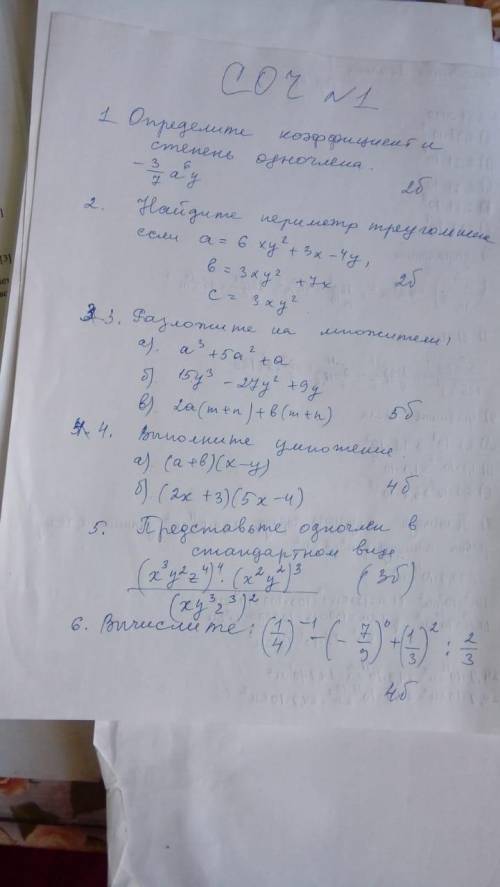 СОЧ №1
1 Определите коэффициент и
степень одночлена.
-3/7 a⁶y 2б
2. Найдите периметр треугольника
если a = 6xy² + 3x - 4y,
b = 3xy² + 7x 2б
c = 3xy²
3. Разложите на множители;
а). a³ + 5a² + a
б). 15y³ - 27y² + 9y
в) 2a(m+n) + b(m+n) 5б
4. Выполните умножение
а). (a+b)(x-y)
б). (2x+3)(5x-4) 4б
5. Представьте одночлен в
стандартном виде
(x³y²z⁴)⁴ · (x²y²)³ / (xy³z³)² (3б)
6. Вычислите: (1/4)⁻¹ - (-7/9)⁰ + (1/3)² : 2/3
4б